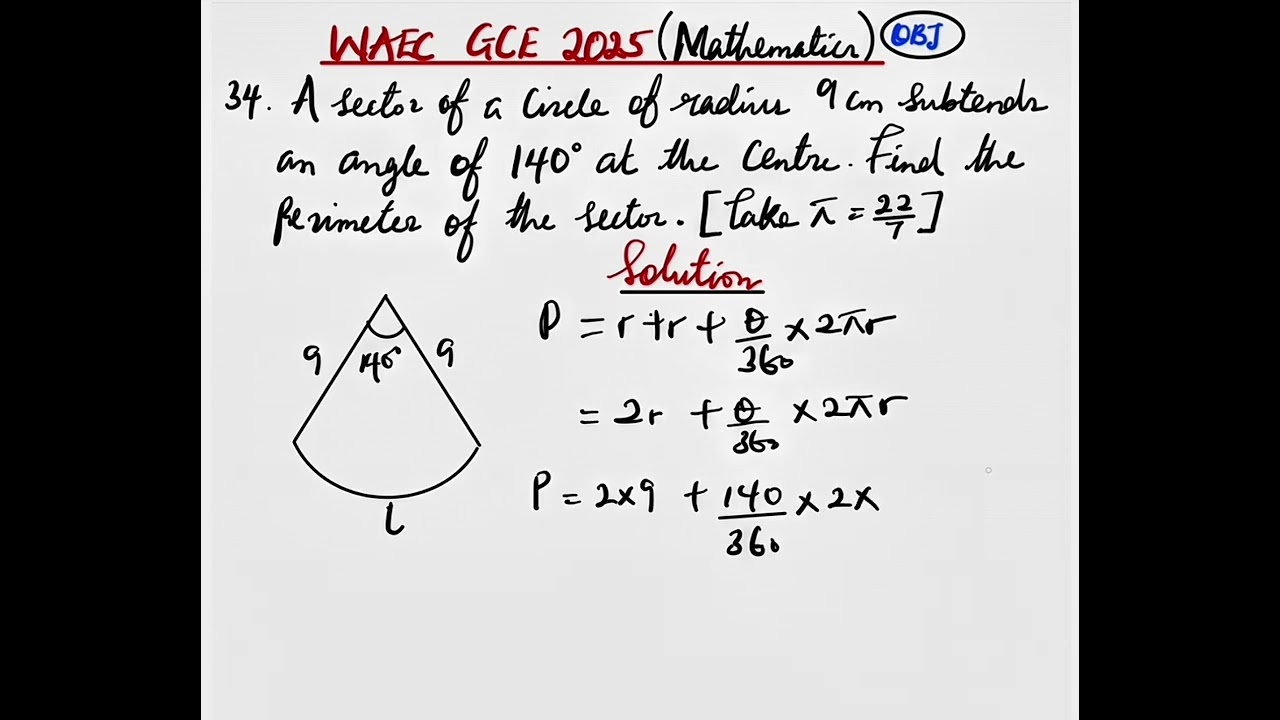 WAEC GCE 2025 (Mathematics) OBJ
34. A sector of a circle of radius 9cm subtends
an angle of 140° at the centre. Find the
Perimeter of the sector. [Take π = 22/7]
Solution
P = r + r + θ/360 × 2πr
9 140° 9
= 2r + θ/360 × 2πr
P = 2×9 + 140/360 × 2×
L